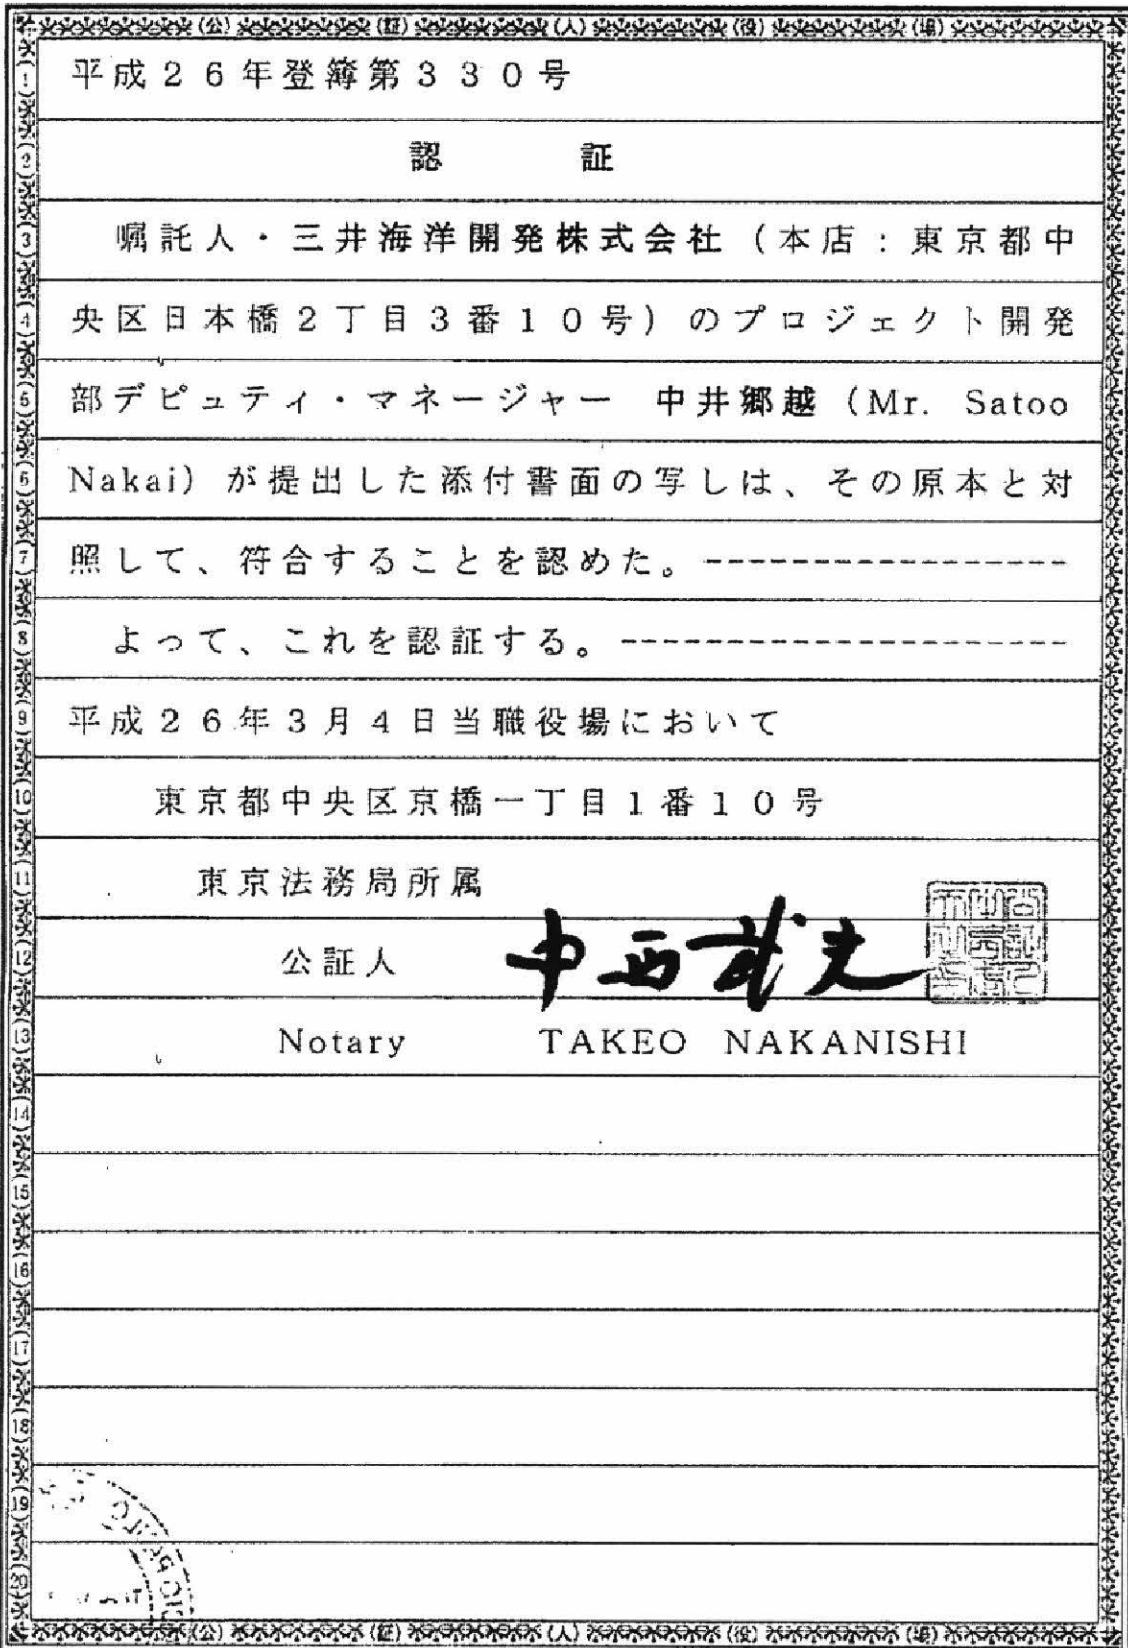 (公) (証) (人) (役) (場)
(1) 平成２６年登簿第３３０号
(2) 認　　　証
(3) 嘱託人・三井海洋開発株式会社（本店：東京都中
(4) 央区日本橋２丁目３番１０号）のプロジェクト開発
(5) 部デピュティ・マネージャー　中井郷越（Mr. Satoo
(6) Nakai）が提出した添付書面の写しは、その原本と対
(7) 照して、符合することを認めた。-----------------
(8) よって、これを認証する。---------------------
(9) 平成２６年３月４日当職役場において
(10) 東京都中央区京橋一丁目１番１０号
(11) 東京法務局所属
(12) 公証人　中西武夫
(13) Notary TAKEO NAKANISHI
(14)
(15)
(16)
(17)
(18)
(19)
(20)
(公) (証) (人) (役) (場)